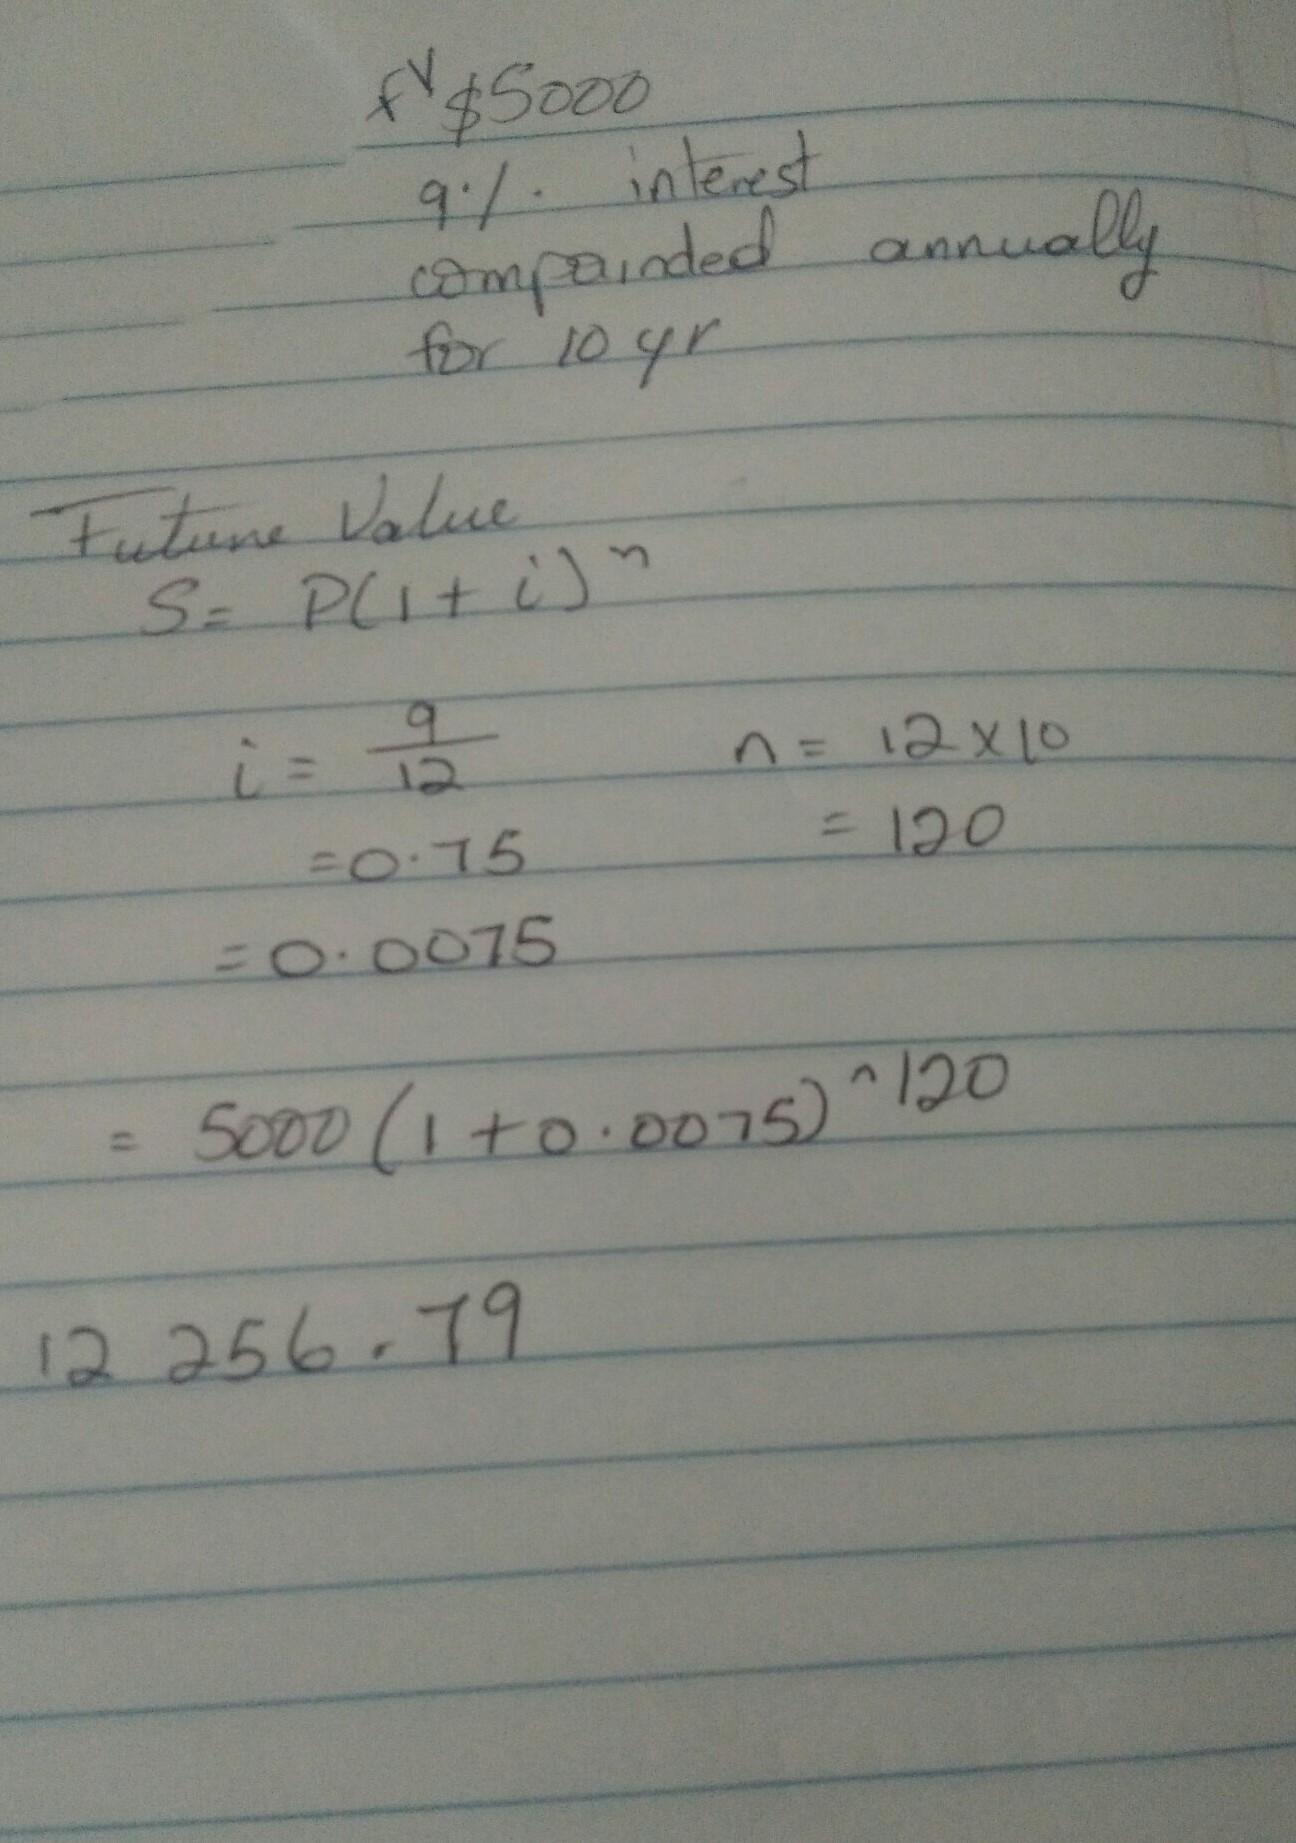 fv $5000
9% interest
compounded annually
for 10 yr
Future Value
S= P(1+i)^n
i = 9/12 n = 12×10
=0.75 = 120
=0.0075
= 5000(1+0.0075)^120
12 256.79